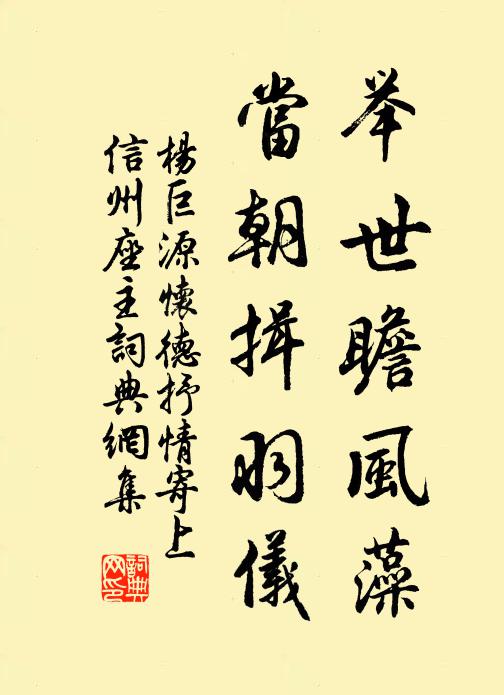 举世瞻風藻
當朝揖羽儀
楊巨源懷德抒情寄上
信州座主詞典網集
詞典网印